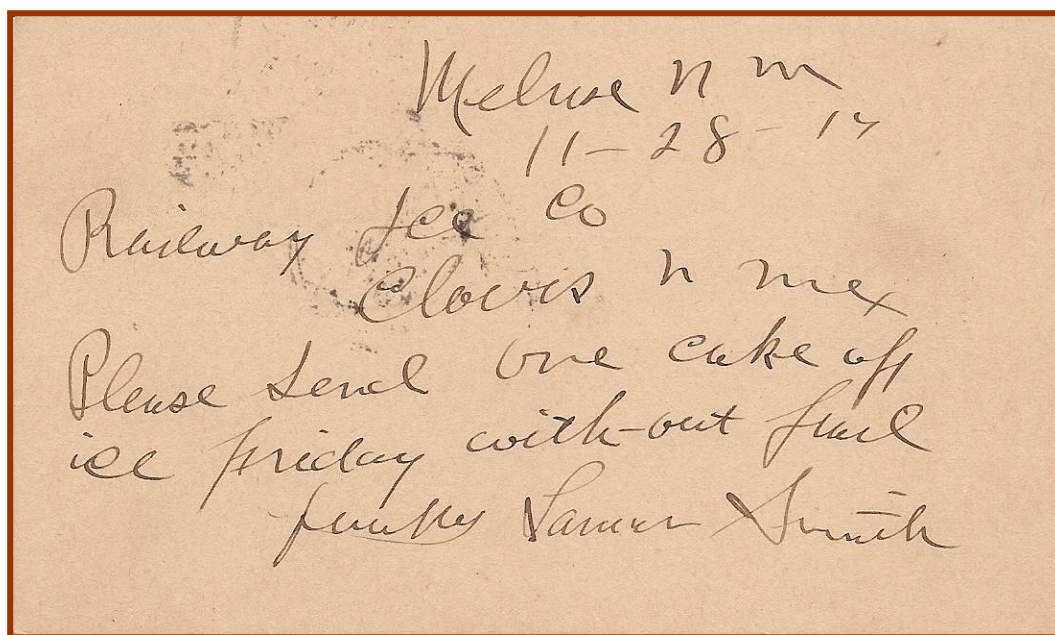 Melrose N M
11-28-17
Railway Ice Co
Clovis N Mex
Please send one cake off
ice friday with-out fail
Smith